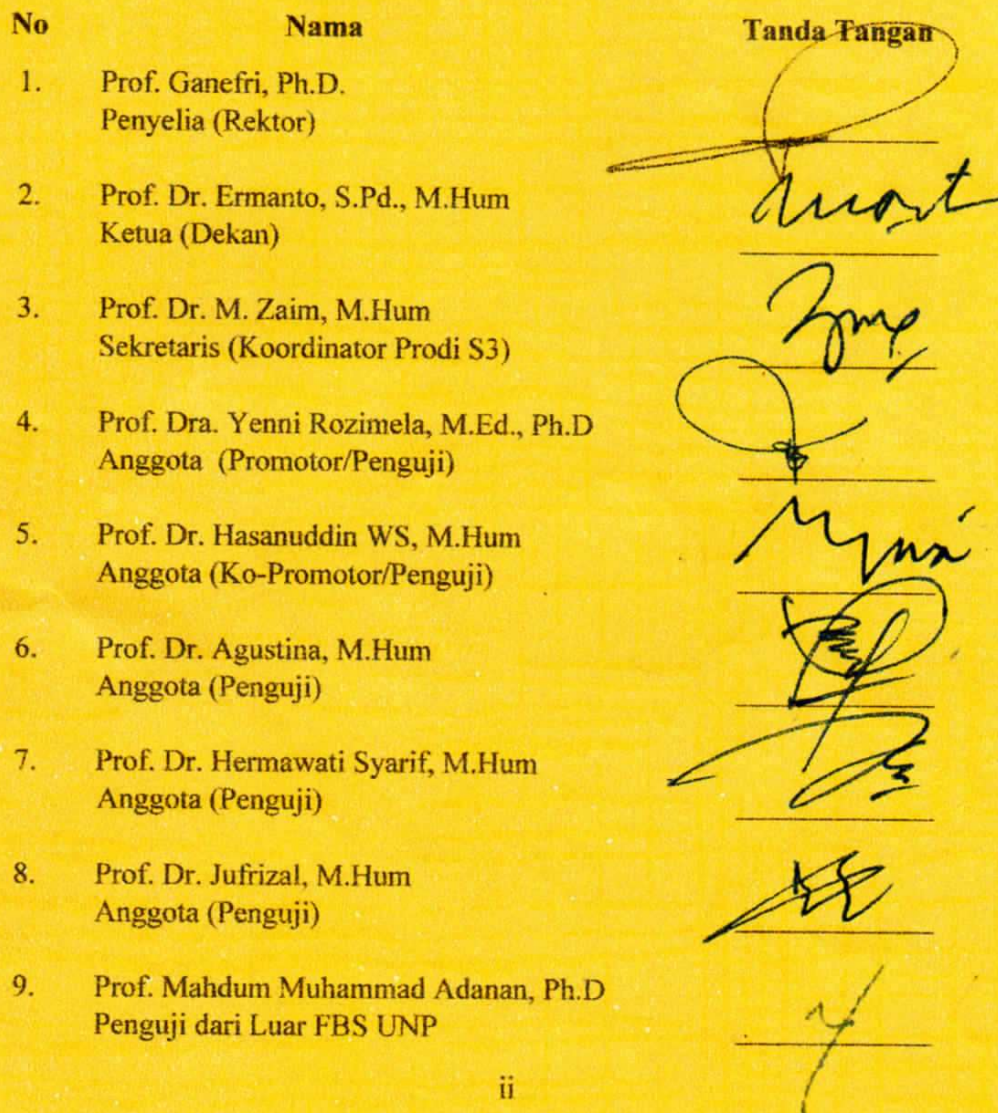 No Nama Tanda Tangan
1. Prof. Ganefri, Ph.D.
Penyelia (Rektor)
2. Prof. Dr. Ermanto, S.Pd., M.Hum
Ketua (Dekan)
3. Prof. Dr. M. Zaim, M.Hum
Sekretaris (Koordinator Prodi S3)
4. Prof. Dra. Yenni Rozimela, M.Ed., Ph.D
Anggota (Promotor/Penguji)
5. Prof. Dr. Hasanuddin WS, M.Hum
Anggota (Ko-Promotor/Penguji)
6. Prof. Dr. Agustina, M.Hum
Anggota (Penguji)
7. Prof. Dr. Hermawati Syarif, M.Hum
Anggota (Penguji)
8. Prof. Dr. Jufrizal, M.Hum
Anggota (Penguji)
9. Prof. Mahdum Muhammad Adanan, Ph.D
Penguji dari Luar FBS UNP
ii